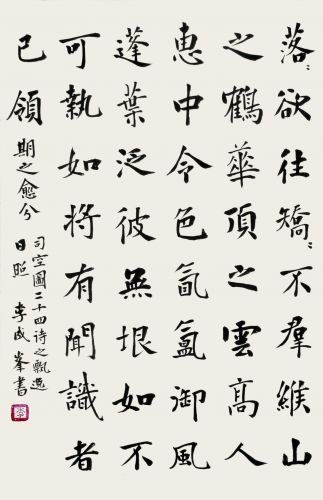 落々欲往矯々不群緱山
之鶴華頂之雲高人
惠中令色氤氳御風
蓬葉泛彼無垠如不
可執如將有聞識者
已領期之愈分
司空圖二十四诗之飄逸
日照李成峯書